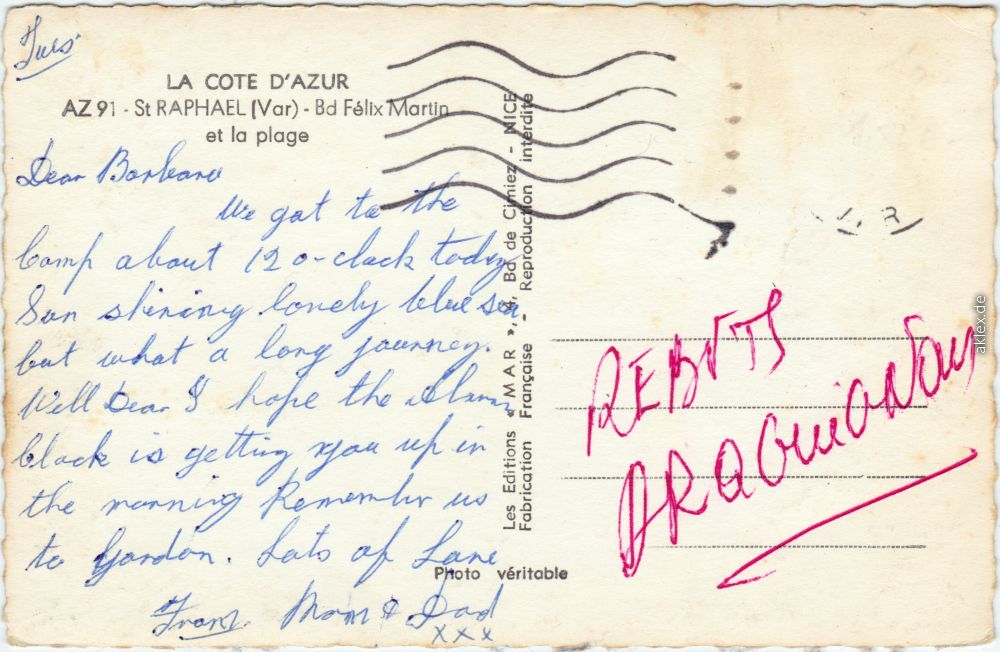 Tues
LA COTE D'AZUR
AZ 91 - St RAPHAEL (Var) - Bd Félix Martin
et la plage
Dear Barbara
We got to the
Camp about 12 o-clock today
Sun shining lovely blue sea
but what a long journey.
Well Dear I hope the Alarm
clock is getting you up in
the morning Remember us
to Gordon. Lots of Love
From. Mom & Dad
xxx
Les Editions « MAR », 4, Bd de Cimiez - NICE
Fabrication Française - Reproduction interdite
Photo véritable
REBUTS
aklex.de